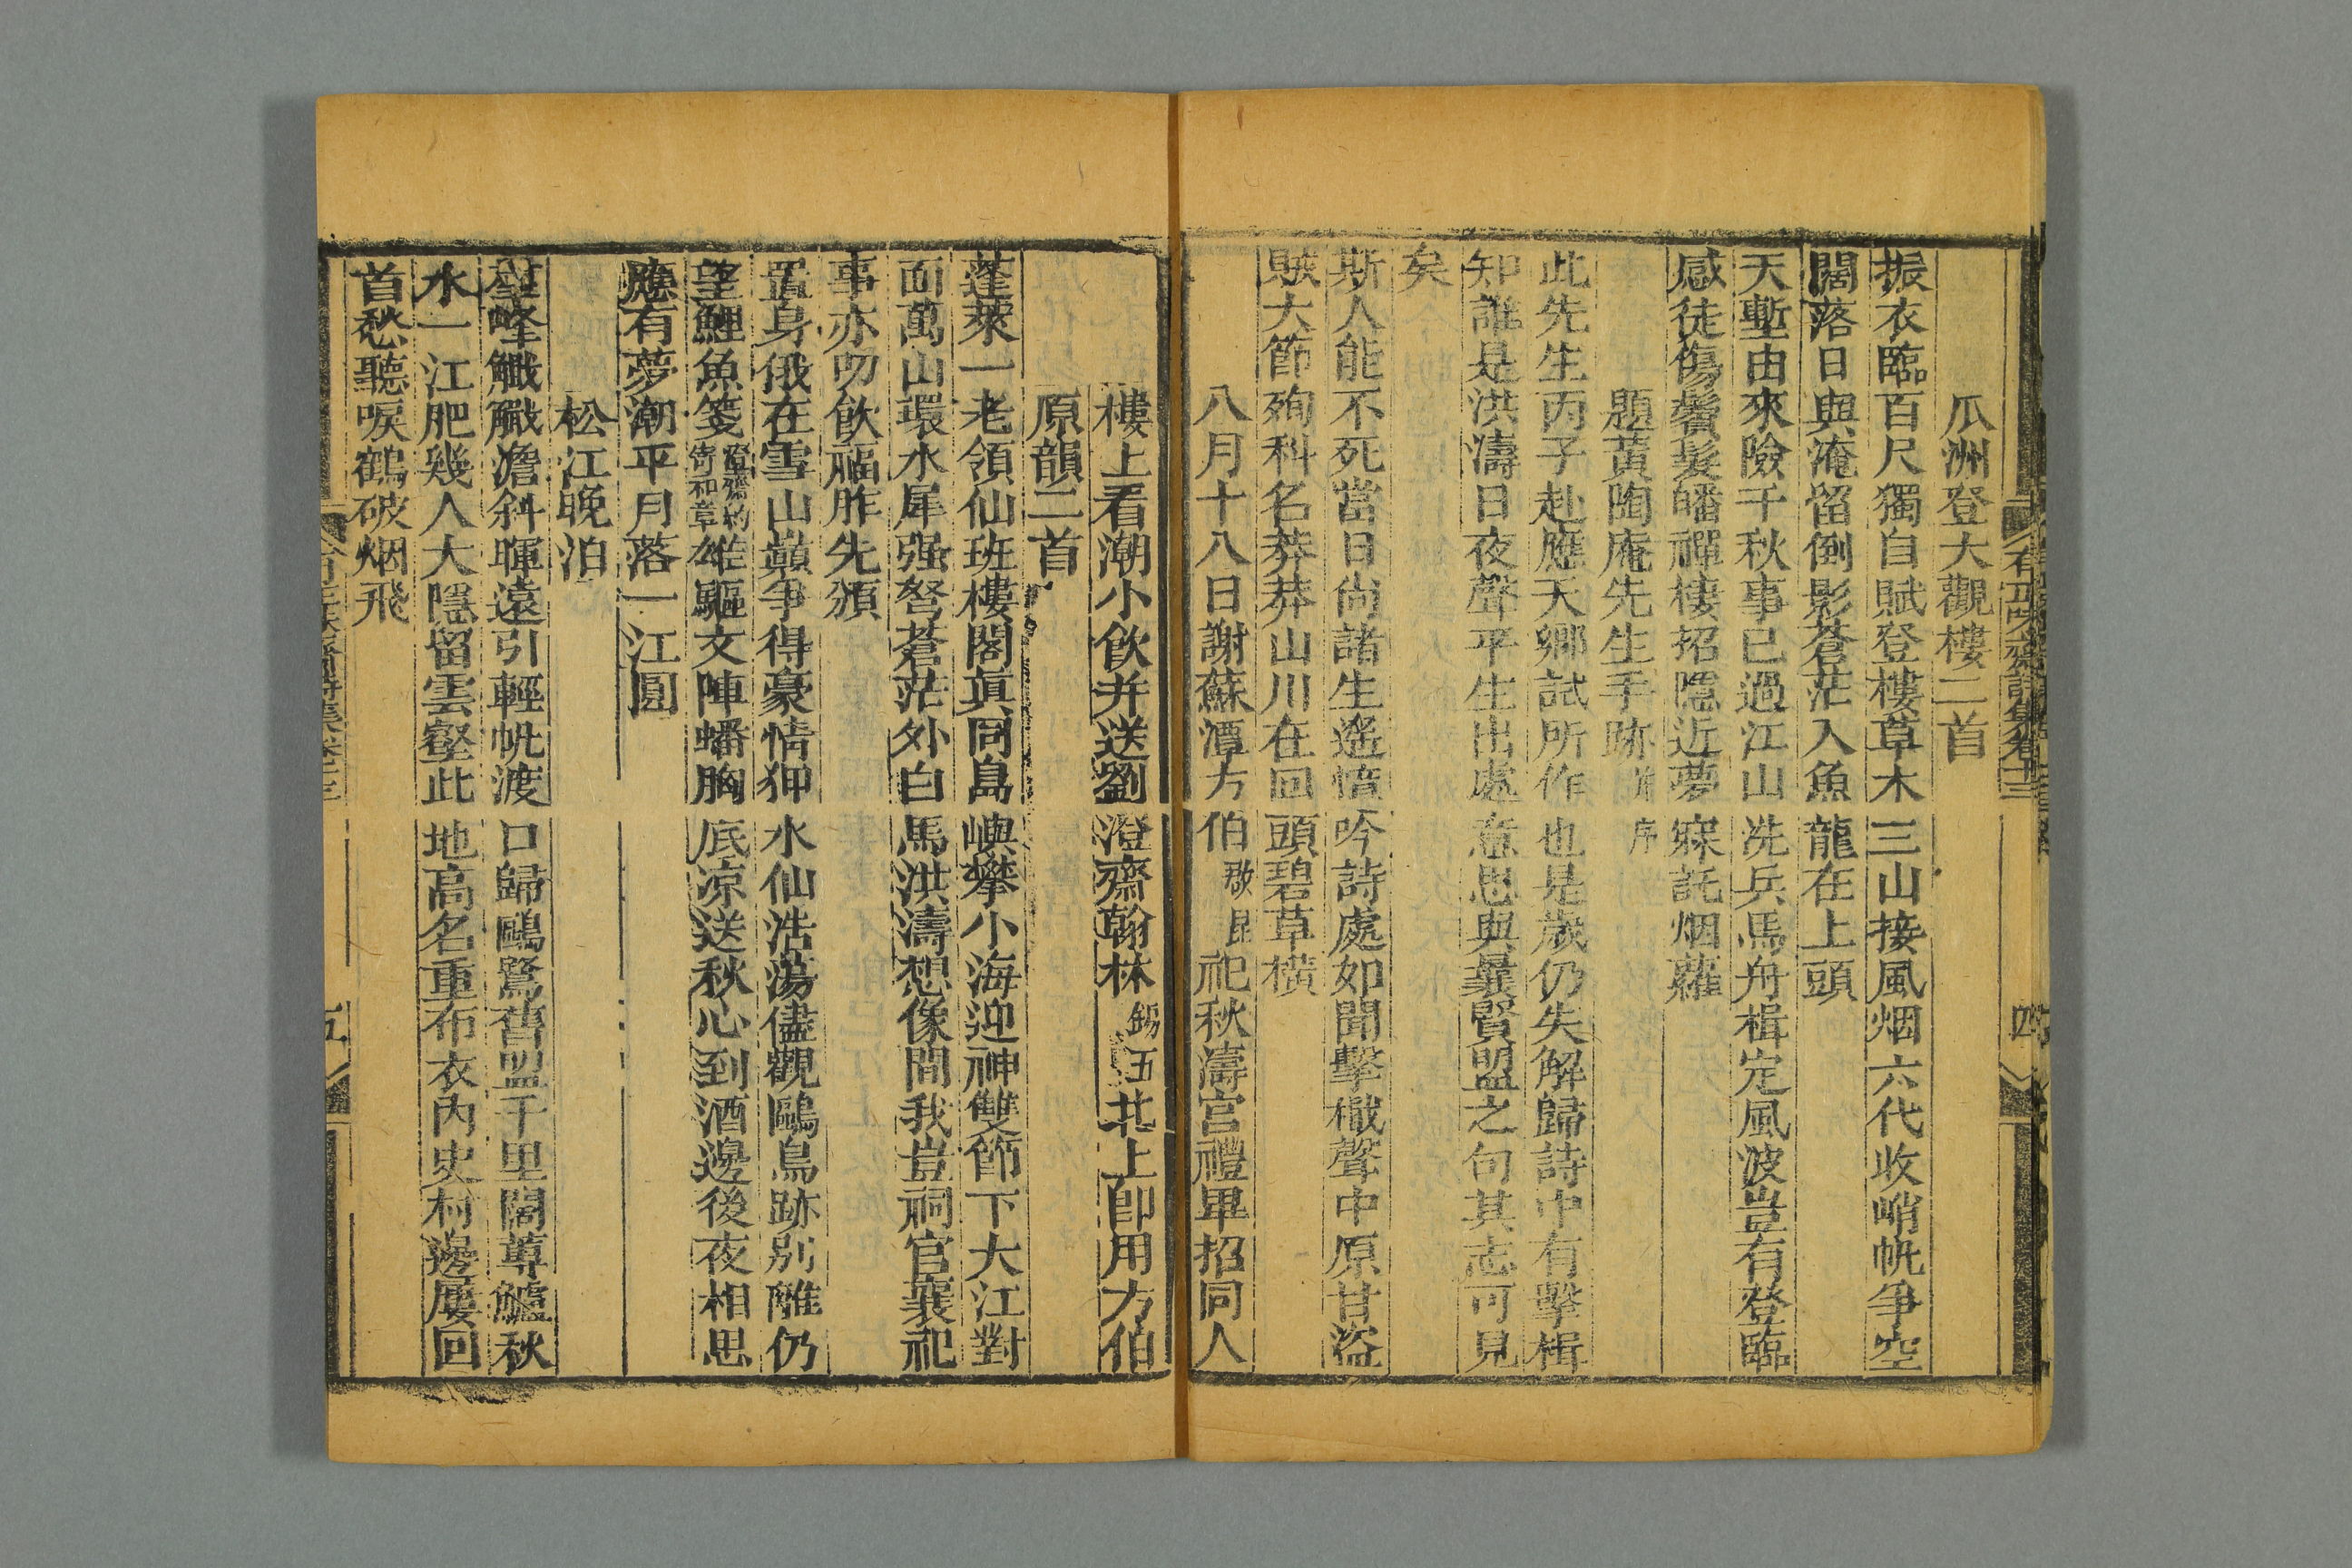 有正味齋詩集卷十三
四
瓜洲登大觀樓二首
振衣臨百尺獨自賦登樓草木三山接風烟六代收哨帆爭空
闊落日與淹留倒影蒼茫入魚龍在上頭
天塹由來險千秋事已過江山洗兵馬舟楫定風波豈有登臨
感徒傷鬢髮皤禪棲招隱近夢寐託烟蘿
題黃陶庵先生手跡 序
此先生丙子赴應天鄉試所作也是歲仍失解歸詩中有擊楫
知誰是洪濤日夜聲平生出處意思與曩賢盟之句其志可見
矣
斯人能不死當日尚諸生遙憤吟詩處如聞擊檝聲中原甘盜
賊大節殉科名莽莽山川在回頭碧草橫
八月十八日謝蘇潭方伯啟昆祀秋濤宮禮畢招同人
樓上看潮小飲并送劉澄齋翰林錫五北上卽用方伯
原韻二首
蓬萊一老領仙班樓閣眞同島嶼攀小海迎神雙節下大江對
面萬山環水犀强弩蒼茫外白馬洪濤想像間我豈祠官襄祀
事亦叨飲福胙先頒
置身俄在雪山巔爭得豪情狎水仙浩蕩儘觀鷗鳥跡別離仍
望鯉魚箋澄齋約寄和章雄驅文陣蟠胸底凉送秋心到酒邊後夜相思
應有夢潮平月落一江圓
松江晚泊
碓峰巇巇澹斜暉遠引輕帆渡口歸鷗鷺舊盟千里闊蓴鱸秋
水一江肥幾人大隱留雲壑此地高名重布衣內史村邊屢回
首愁聽唳鶴破烟飛
有正味齋詩集卷十三
五